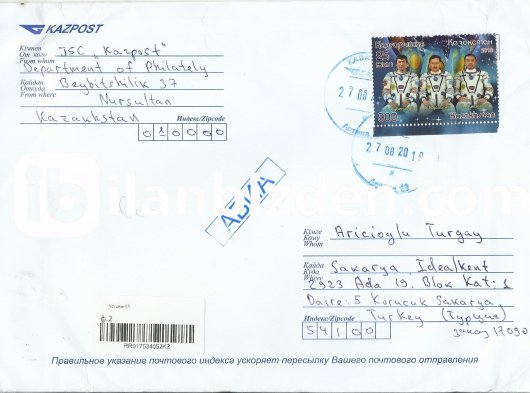 KAZPOST
Кімнен
От кого
From whom
JSC "Kazpost"
Department of Philately
Қайдан
Откуда
From where
Beybitshilik 37
Nursultan
Kazakhstan
Индекс/Zipcode
010000
Қазақстан
2019
27 08
27 08 2019
АВИА
Кімге
Кому
Whom
Aricioglu Turgay
Қайда
Куда
Where
Sakarya Idealkent
2923 Ada 19. Blok Kat: 1
Daire: 5 Korucuk Sakarya
Turkey (Турция)
Индекс/Zipcode
54100
заказ 17090
ф.2
RR017534052KZ
Правильное указание почтового индекса ускоряет пересылку Вашего почтового отправления